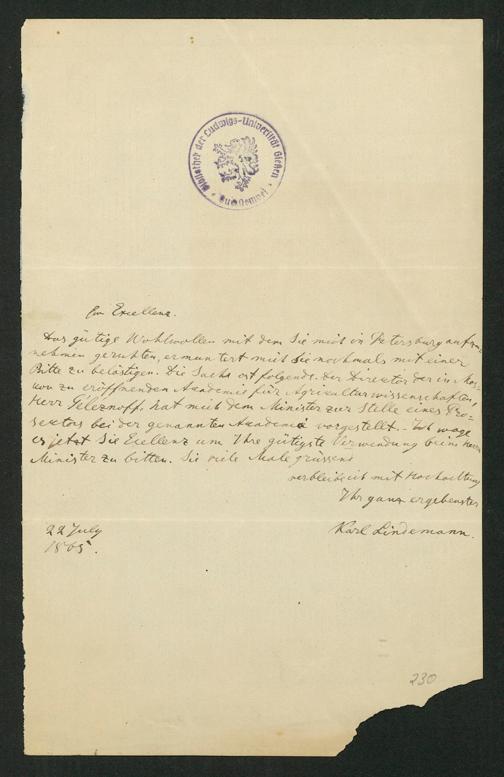 Bibliothek der Ludwigs-Universität Gießen
Ew Excellenz.
Das gütige Wohlwollen mit dem Sie mich in Petersburg aufzu-
nehmen geruhten, ermuntert mich Sie nochmals mit einer
Bitte zu belästigen. Die Sache ist folgende. Der Director der in Mos-
kau zu eröffnenden Academie für Agriculturwissenschaften,
Herr Geleznoff, hat mich dem Minister zur Stelle eines Pro-
sectors bei der genannten Academie vorgestellt. Ich wage
es jetzt Sie Excellenz um Ihre gütigste Verwendung beim Herrn
Minister zu bitten. Sie viele Male grüssend
verbleibe ich mit Hochachtung
Ihr ganz ergebenster
Karl Lindemann.
22 July
1865.
230